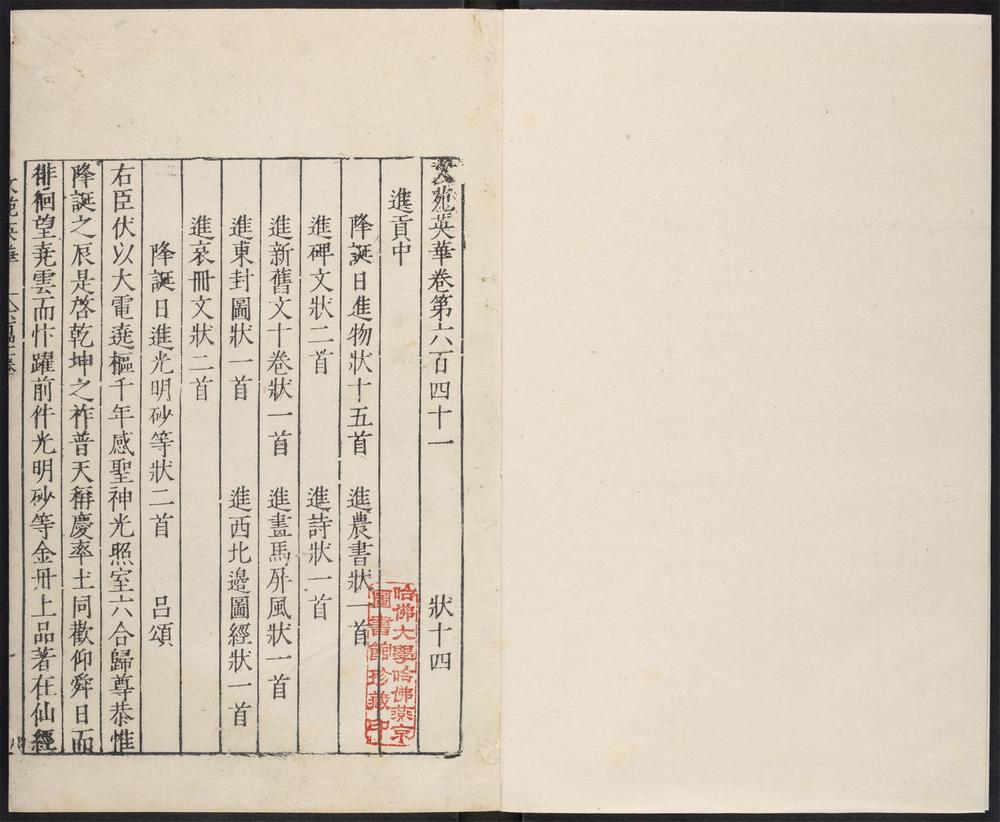 文苑英華卷第六百四十一 狀十四
進貢中
降誕日進物狀十五首 進農書狀一首
進碑文狀二首 進詩狀一首
進新舊文十卷狀一首 進畫馬屏風狀一首
進東封圖狀一首 進西北邊圖經狀一首
進哀冊文狀二首
降誕日進光明砂等狀二首 呂頌
右臣伏以大電遶樞千年感聖神光照室六合歸尊恭惟
降誕之辰是啓乾坤之祚普天稱慶率土同歡仰舜日而
徘徊望堯雲而忭躍前件光明砂等金冊上品著在仙經
哈佛大學哈佛燕京
圖書館珍藏印